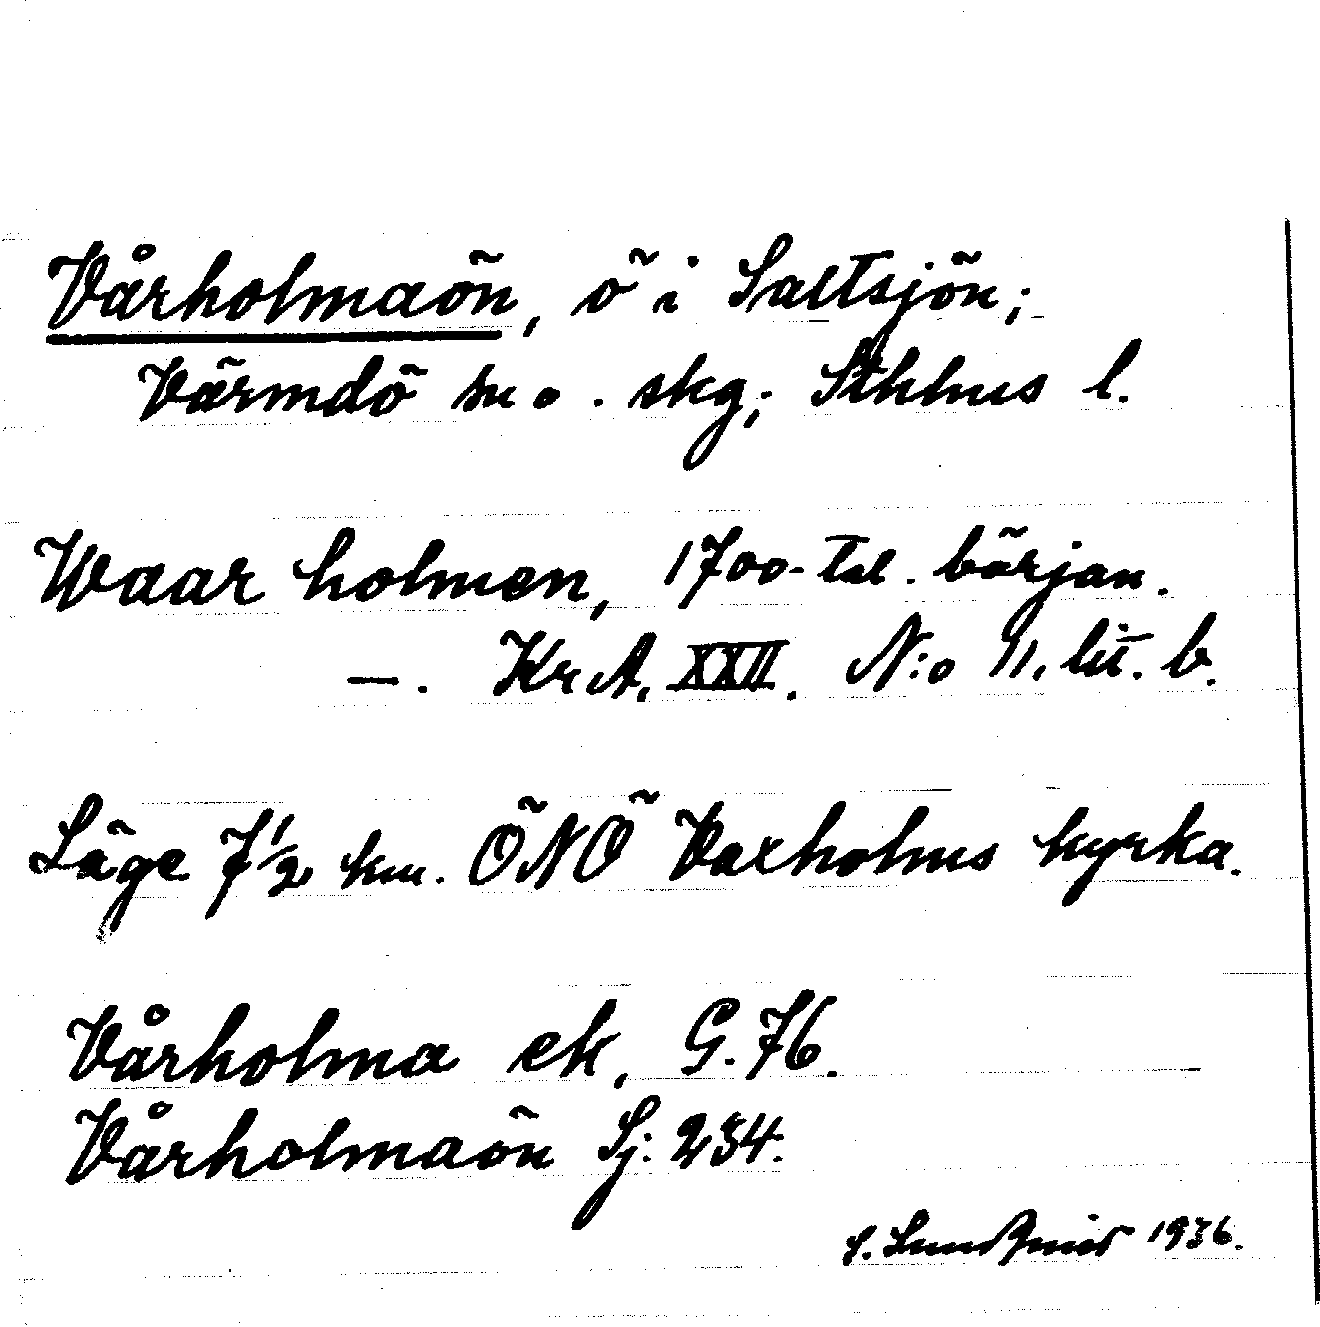 Vårholmaön, ö i Saltsjön;
Värmdö sn o. skg; Sthlms l.
Waar holmen, 1700-tal. början.
—. KrA, XXII. N:o 11. lit. b.
Läge 7½ km. ÖNÖ Vaxholms kyrka.
Vårholma ek, G. 76.
Vårholmaön Sj: 234.
1936.